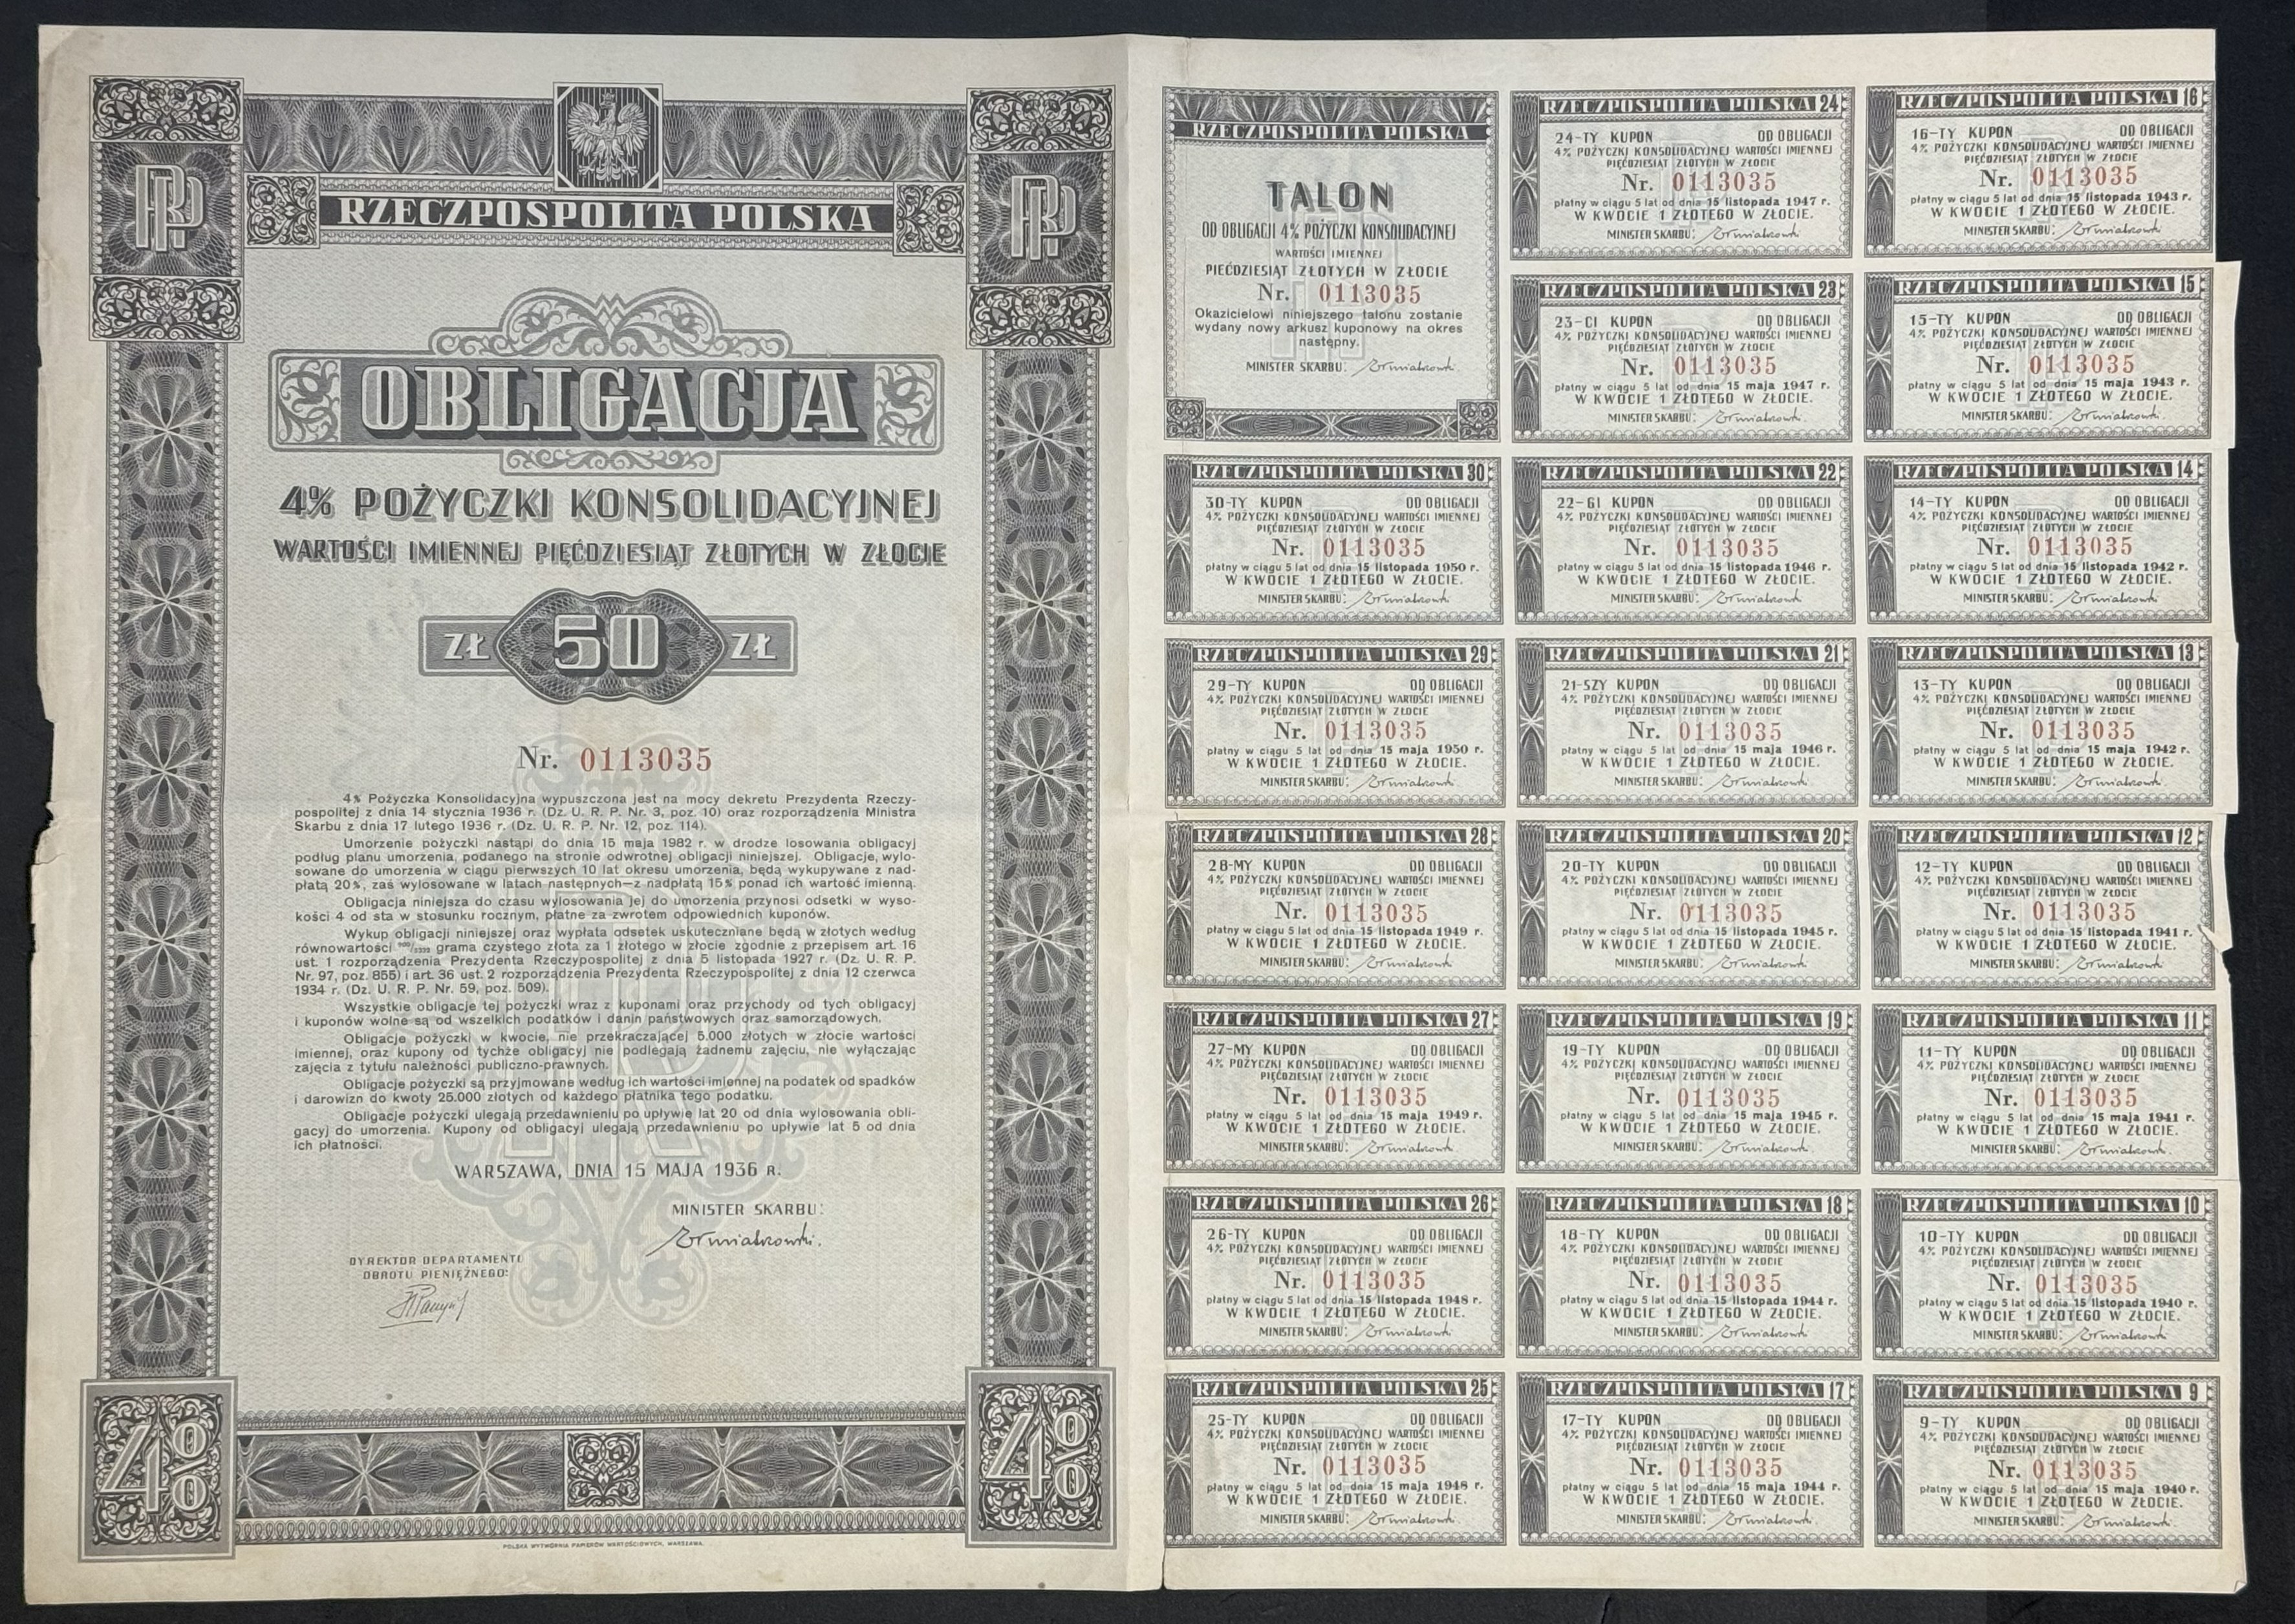 RP
RP
RZECZPOSPOLITA POLSKA
OBLIGACJA
4% POŻYCZKI KONSOLIDACYJNEJ
WARTOŚCI IMIENNEJ PIĘĆDZIESIĄT ZŁOTYCH W ZŁOCIE
ZŁ 50 ZŁ
Nr. 0113035
4% Pożyczka Konsolidacyjna wypuszczona jest na mocy dekretu Prezydenta Rzeczy-
pospolitej z dnia 14 stycznia 1936 r. (Dz. U. R. P. Nr. 3, poz. 10) oraz rozporządzenia Ministra
Skarbu z dnia 17 lutego 1936 r. (Dz. U. R. P. Nr. 12, poz. 114).
Umorzenie pożyczki nastąpi do dnia 15 maja 1982 r. w drodze losowania obligacyj
podług planu umorzenia, podanego na stronie odwrotnej obligacji niniejszej. Obligacje, wylo-
sowane do umorzenia w ciągu pierwszych 10 lat okresu umorzenia, będą wykupywane z nad-
płatą 20%, zaś wylosowane w latach następnych—z nadpłatą 15% ponad ich wartość imienną.
Obligacja niniejsza do czasu wylosowania jej do umorzenia przynosi odsetki w wyso-
kości 4 od sta w stosunku rocznym, płatne za zwrotem odpowiednich kuponów.
Wykup obligacji niniejszej oraz wypłata odsetek uskuteczniane będą w złotych według
równowartości grama czystego złota za 1 złotego w złocie zgodnie z przepisem art. 16
ust. 1 rozporządzenia Prezydenta Rzeczypospolitej z dnia 5 listopada 1927 r. (Dz. U. R. P.
Nr. 97, poz. 855) i art. 36 ust. 2 rozporządzenia Prezydenta Rzeczypospolitej z dnia 12 czerwca
1934 r. (Dz. U. R. P. Nr. 59, poz. 509).
Wszystkie obligacje tej pożyczki wraz z kuponami oraz przychody od tych obligacyj
i kuponów wolne są od wszelkich podatków i danin państwowych oraz samorządowych.
Obligacje pożyczki w kwocie, nie przekraczającej 5.000 złotych w złocie wartości
imiennej, oraz kupony od tychże obligacyj nie podlegają żadnemu zajęciu, nie wyłączając
zajęcia z tytułu należności publiczno-prawnych.
Obligacje pożyczki są przyjmowane według ich wartości imiennej na podatek od spadków
i darowizn do kwoty 25.000 złotych od każdego płatnika tego podatku.
Obligacje pożyczki ulegają przedawnieniu po upływie lat 20 od dnia wylosowania obli-
gacyj do umorzenia. Kupony od obligacyj ulegają przedawnieniu po upływie lat 5 od dnia
ich płatności.
WARSZAWA, DNIA 15 MAJA 1936 R.
MINISTER SKARBU:
DYREKTOR DEPARTAMENTU
OBROTU PIENIĘŻNEGO:
4%
4%
POLSKA WYTWÓRNIA PAPIERÓW WARTOŚCIOWYCH, WARSZAWA.
RZECZPOSPOLITA POLSKA
TALON
OD OBLIGACJI 4% POŻYCZKI KONSOLIDACYJNEJ
WARTOŚCI IMIENNEJ
PIEĆDZIESIĄT ZŁOTYCH W ZŁOCIE
Nr. 0113035
Okazicielowi niniejszego talonu zostanie
wydany nowy arkusz kuponowy na okres
następny.
MINISTER SKARBU:
RZECZPOSPOLITA POLSKA 30
30-TY KUPON OD OBLIGACJI
4% POŻYCZKI KONSOLIDACYJNEJ WARTOŚCI IMIENNEJ
PIĘĆDZIESIĄT ZŁOTYCH W ZŁOCIE
Nr. 0113035
płatny w ciągu 5 lat od dnia 15 listopada 1950 r.
W KWOCIE 1 ZŁOTEGO W ZŁOCIE.
MINISTER SKARBU:
RZECZPOSPOLITA POLSKA 29
29-TY KUPON OD OBLIGACJI
4% POŻYCZKI KONSOLIDACYJNEJ WARTOŚCI IMIENNEJ
PIĘĆDZIESIĄT ZŁOTYCH W ZŁOCIE
Nr. 0113035
płatny w ciągu 5 lat od dnia 15 maja 1950 r.
W KWOCIE 1 ZŁOTEGO W ZŁOCIE.
MINISTER SKARBU:
RZECZPOSPOLITA POLSKA 28
28-MY KUPON OD OBLIGACJI
4% POŻYCZKI KONSOLIDACYJNEJ WARTOŚCI IMIENNEJ
PIĘĆDZIESIĄT ZŁOTYCH W ZŁOCIE
Nr. 0113035
płatny w ciągu 5 lat od dnia 15 listopada 1949 r.
W KWOCIE 1 ZŁOTEGO W ZŁOCIE.
MINISTER SKARBU:
RZECZPOSPOLITA POLSKA 27
27-MY KUPON OD OBLIGACJI
4% POŻYCZKI KONSOLIDACYJNEJ WARTOŚCI IMIENNEJ
PIĘĆDZIESIĄT ZŁOTYCH W ZŁOCIE
Nr. 0113035
płatny w ciągu 5 lat od dnia 15 maja 1949 r.
W KWOCIE 1 ZŁOTEGO W ZŁOCIE.
MINISTER SKARBU:
RZECZPOSPOLITA POLSKA 26
26-TY KUPON OD OBLIGACJI
4% POŻYCZKI KONSOLIDACYJNEJ WARTOŚCI IMIENNEJ
PIĘĆDZIESIĄT ZŁOTYCH W ZŁOCIE
Nr. 0113035
płatny w ciągu 5 lat od dnia 15 listopada 1948 r.
W KWOCIE 1 ZŁOTEGO W ZŁOCIE.
MINISTER SKARBU:
RZECZPOSPOLITA POLSKA 25
25-TY KUPON OD OBLIGACJI
4% POŻYCZKI KONSOLIDACYJNEJ WARTOŚCI IMIENNEJ
PIĘĆDZIESIĄT ZŁOTYCH W ZŁOCIE
Nr. 0113035
płatny w ciągu 5 lat od dnia 15 maja 1948 r.
W KWOCIE 1 ZŁOTEGO W ZŁOCIE.
MINISTER SKARBU:
RZECZPOSPOLITA POLSKA 24
24-TY KUPON OD OBLIGACJI
4% POŻYCZKI KONSOLIDACYJNEJ WARTOŚCI IMIENNEJ
PIĘĆDZIESIĄT ZŁOTYCH W ZŁOCIE
Nr. 0113035
płatny w ciągu 5 lat od dnia 15 listopada 1947 r.
W KWOCIE 1 ZŁOTEGO W ZŁOCIE.
MINISTER SKARBU:
RZECZPOSPOLITA POLSKA 23
23-CI KUPON OD OBLIGACJI
4% POŻYCZKI KONSOLIDACYJNEJ WARTOŚCI IMIENNEJ
PIĘĆDZIESIĄT ZŁOTYCH W ZŁOCIE
Nr. 0113035
płatny w ciągu 5 lat od dnia 15 maja 1947 r.
W KWOCIE 1 ZŁOTEGO W ZŁOCIE.
MINISTER SKARBU:
RZECZPOSPOLITA POLSKA 22
22-GI KUPON OD OBLIGACJI
4% POŻYCZKI KONSOLIDACYJNEJ WARTOŚCI IMIENNEJ
PIĘĆDZIESIĄT ZŁOTYCH W ZŁOCIE
Nr. 0113035
płatny w ciągu 5 lat od dnia 15 listopada 1946 r.
W KWOCIE 1 ZŁOTEGO W ZŁOCIE.
MINISTER SKARBU:
RZECZPOSPOLITA POLSKA 21
21-SZY KUPON OD OBLIGACJI
4% POŻYCZKI KONSOLIDACYJNEJ WARTOŚCI IMIENNEJ
PIĘĆDZIESIĄT ZŁOTYCH W ZŁOCIE
Nr. 0113035
płatny w ciągu 5 lat od dnia 15 maja 1946 r.
W KWOCIE 1 ZŁOTEGO W ZŁOCIE.
MINISTER SKARBU:
RZECZPOSPOLITA POLSKA 20
20-TY KUPON OD OBLIGACJI
4% POŻYCZKI KONSOLIDACYJNEJ WARTOŚCI IMIENNEJ
PIĘĆDZIESIĄT ZŁOTYCH W ZŁOCIE
Nr. 0113035
płatny w ciągu 5 lat od dnia 15 listopada 1945 r.
W KWOCIE 1 ZŁOTEGO W ZŁOCIE.
MINISTER SKARBU:
RZECZPOSPOLITA POLSKA 19
19-TY KUPON OD OBLIGACJI
4% POŻYCZKI KONSOLIDACYJNEJ WARTOŚCI IMIENNEJ
PIĘĆDZIESIĄT ZŁOTYCH W ZŁOCIE
Nr. 0113035
płatny w ciągu 5 lat od dnia 15 maja 1945 r.
W KWOCIE 1 ZŁOTEGO W ZŁOCIE.
MINISTER SKARBU:
RZECZPOSPOLITA POLSKA 18
18-TY KUPON OD OBLIGACJI
4% POŻYCZKI KONSOLIDACYJNEJ WARTOŚCI IMIENNEJ
PIĘĆDZIESIĄT ZŁOTYCH W ZŁOCIE
Nr. 0113035
płatny w ciągu 5 lat od dnia 15 listopada 1944 r.
W KWOCIE 1 ZŁOTEGO W ZŁOCIE.
MINISTER SKARBU:
RZECZPOSPOLITA POLSKA 17
17-TY KUPON OD OBLIGACJI
4% POŻYCZKI KONSOLIDACYJNEJ WARTOŚCI IMIENNEJ
PIĘĆDZIESIĄT ZŁOTYCH W ZŁOCIE
Nr. 0113035
płatny w ciągu 5 lat od dnia 15 maja 1944 r.
W KWOCIE 1 ZŁOTEGO W ZŁOCIE.
MINISTER SKARBU:
RZECZPOSPOLITA POLSKA 16
16-TY KUPON OD OBLIGACJI
4% POŻYCZKI KONSOLIDACYJNEJ WARTOŚCI IMIENNEJ
PIĘĆDZIESIĄT ZŁOTYCH W ZŁOCIE
Nr. 0113035
płatny w ciągu 5 lat od dnia 15 listopada 1943 r.
W KWOCIE 1 ZŁOTEGO W ZŁOCIE.
MINISTER SKARBU:
RZECZPOSPOLITA POLSKA 15
15-TY KUPON OD OBLIGACJI
4% POŻYCZKI KONSOLIDACYJNEJ WARTOŚCI IMIENNEJ
PIĘĆDZIESIĄT ZŁOTYCH W ZŁOCIE
Nr. 0113035
płatny w ciągu 5 lat od dnia 15 maja 1943 r.
W KWOCIE 1 ZŁOTEGO W ZŁOCIE.
MINISTER SKARBU:
RZECZPOSPOLITA POLSKA 14
14-TY KUPON OD OBLIGACJI
4% POŻYCZKI KONSOLIDACYJNEJ WARTOŚCI IMIENNEJ
PIĘĆDZIESIĄT ZŁOTYCH W ZŁOCIE
Nr. 0113035
płatny w ciągu 5 lat od dnia 15 listopada 1942 r.
W KWOCIE 1 ZŁOTEGO W ZŁOCIE.
MINISTER SKARBU:
RZECZPOSPOLITA POLSKA 13
13-TY KUPON OD OBLIGACJI
4% POŻYCZKI KONSOLIDACYJNEJ WARTOŚCI IMIENNEJ
PIĘĆDZIESIĄT ZŁOTYCH W ZŁOCIE
Nr. 0113035
płatny w ciągu 5 lat od dnia 15 maja 1942 r.
W KWOCIE 1 ZŁOTEGO W ZŁOCIE.
MINISTER SKARBU:
RZECZPOSPOLITA POLSKA 12
12-TY KUPON OD OBLIGACJI
4% POŻYCZKI KONSOLIDACYJNEJ WARTOŚCI IMIENNEJ
PIĘĆDZIESIĄT ZŁOTYCH W ZŁOCIE
Nr. 0113035
płatny w ciągu 5 lat od dnia 15 listopada 1941 r.
W KWOCIE 1 ZŁOTEGO W ZŁOCIE.
MINISTER SKARBU:
RZECZPOSPOLITA POLSKA 11
11-TY KUPON OD OBLIGACJI
4% POŻYCZKI KONSOLIDACYJNEJ WARTOŚCI IMIENNEJ
PIĘĆDZIESIĄT ZŁOTYCH W ZŁOCIE
Nr. 0113035
płatny w ciągu 5 lat od dnia 15 maja 1941 r.
W KWOCIE 1 ZŁOTEGO W ZŁOCIE.
MINISTER SKARBU:
RZECZPOSPOLITA POLSKA 10
10-TY KUPON OD OBLIGACJI
4% POŻYCZKI KONSOLIDACYJNEJ WARTOŚCI IMIENNEJ
PIĘĆDZIESIĄT ZŁOTYCH W ZŁOCIE
Nr. 0113035
płatny w ciągu 5 lat od dnia 15 listopada 1940 r.
W KWOCIE 1 ZŁOTEGO W ZŁOCIE.
MINISTER SKARBU:
RZECZPOSPOLITA POLSKA 9
9-TY KUPON OD OBLIGACJI
4% POŻYCZKI KONSOLIDACYJNEJ WARTOŚCI IMIENNEJ
PIĘĆDZIESIĄT ZŁOTYCH W ZŁOCIE
Nr. 0113035
płatny w ciągu 5 lat od dnia 15 maja 1940 r.
W KWOCIE 1 ZŁOTEGO W ZŁOCIE.
MINISTER SKARBU: